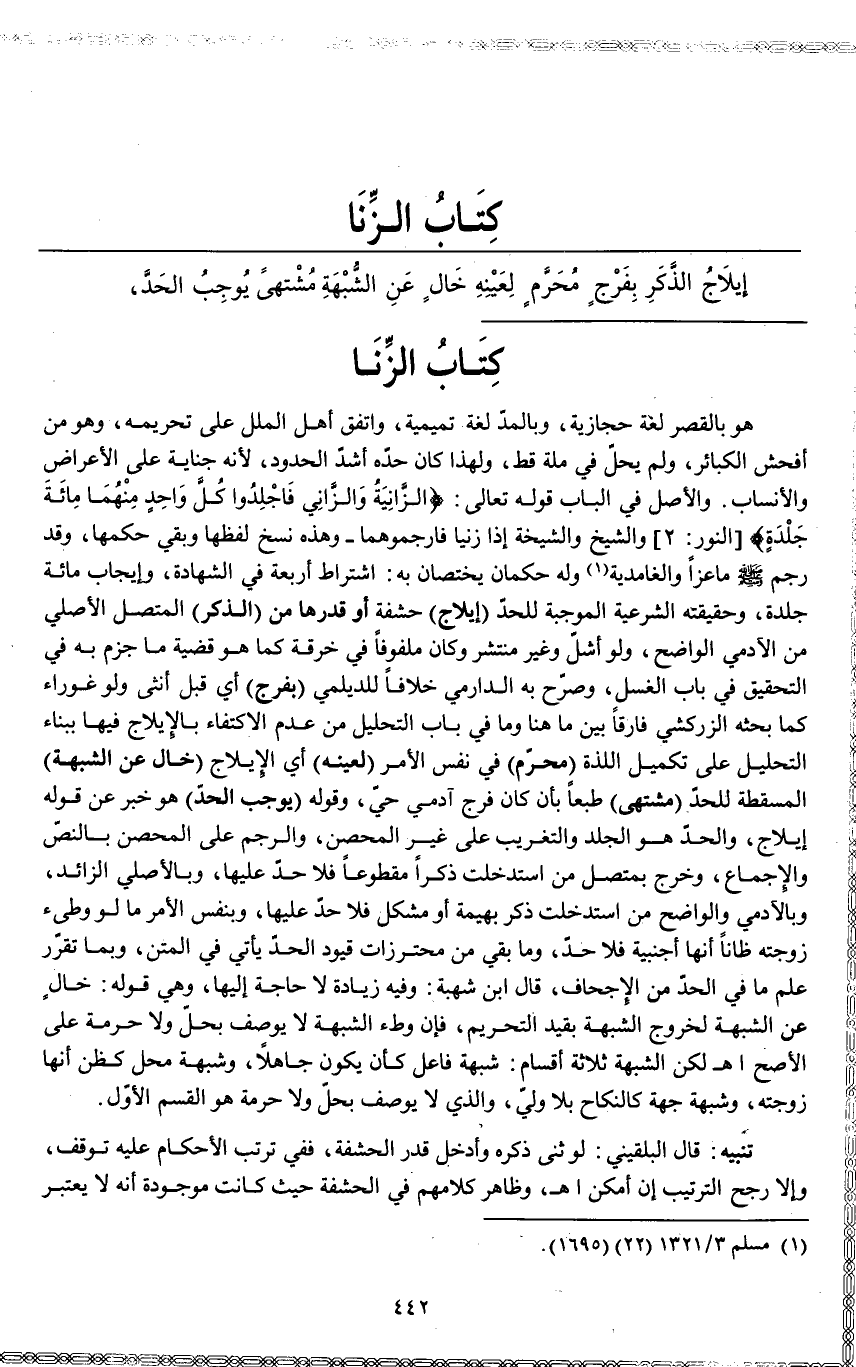 كِتَابُ الزِّنَا
إيلَاجُ الذَّكَرِ بِفَرْجٍ مُحَرَّمٍ لِعَيْنِهِ خَالٍ عَنِ الشُّبْهَةِ مُشْتَهىً يُوجِبُ الحَدَّ،
كِتَابُ الزِّنَا
هو بالقصر لغة حجازية، وبالمدّ لغة تميمية، واتفق أهل الملل على تحريمه، وهو من
أفحش الكبائر، ولم يحلّ في ملة قط، ولهذا كان حدّه أشدّ الحدود، لأنه جناية على الأعراض
والأنساب. والأصل في الباب قوله تعالى: ﴿الزَّانِيَةُ وَالزَّانِي فَاجْلِدُوا كُلَّ وَاحِدٍ مِنْهُمَا مِائَةَ
جَلْدَةٍ﴾ [النور: ٢] والشيخ والشيخة إذا زنيا فارجموهما ـ وهذه نسخ لفظها وبقي حكمها، وقد
رجم ﷺ ماعزاً والغامدية(١) وله حكمان يختصان به: اشتراط أربعة في الشهادة، وإيجاب مائة
جلدة، وحقيقته الشرعية الموجبة للحدّ (إيلاج) حشفة أو قدرها من (الذكر) المتصل الأصلي
من الآدمي الواضح، ولو أشلّ وغير منتشر وكان ملفوفاً في خرقة كما هو قضية ما جزم به في
التحقيق في باب الغسل، وصرّح به الدارمي خلافاً للديلمي (بفرج) أي قبل أنثى ولو غوراء
كما بحثه الزركشي فارقاً بين ما هنا وما في باب التحليل من عدم الاكتفاء بالإيلاج فيها ببناء
التحليل على تكميل اللذة (محرّم) في نفس الأمر (لعينه) أي الإيلاج (خال عن الشبهة)
المسقطة للحدّ (مشتهى) طبعاً بأن كان فرج آدمي حيّ، وقوله (يوجب الحدّ) هو خبر عن قوله
إيلاج، والحدّ هو الجلد والتغريب على غير المحصن، والرجم على المحصن بالنصّ
والإجماع، وخرج بمتصل من استدخلت ذكراً مقطوعاً فلا حدّ عليها، وبالأصلي الزائد،
وبالآدمي والواضح من استدخلت ذكر بهيمة أو مشكل فلا حدّ عليها، وبنفس الأمر ما لو وطىء
زوجته ظاناً أنها أجنبية فلا حدّ، وما بقي من محترزات قيود الحدّ يأتي في المتن، وبما تقرّر
علم ما في الحدّ من الإجحاف، قال ابن شهبة: وفيه زيادة لا حاجة إليها، وهي قوله: خالٍ
عن الشبهة لخروج الشبهة بقيد التحريم، فإن وطء الشبهة لا يوصف بحلّ ولا حرمة على
الأصح ا هـ لكن الشبهة ثلاثة أقسام: شبهة فاعل كأن يكون جاهلاً، وشبهة محل كظن أنها
زوجته، وشبهة جهة كالنكاح بلا وليّ، والذي لا يوصف بحلّ ولا حرمة هو القسم الأوّل.
تنبيه: قال البلقيني: لو ثنى ذكره وأدخل قدر الحشفة، ففي ترتب الأحكام عليه توقف،
وإلا رجح الترتيب إن أمكن ا هـ، وظاهر كلامهم في الحشفة حيث كانت موجودة أنه لا يعتبر
(١) مسلم ١٣٢١/٣ (٢٢) (١٦٩٥).
٤٤٢